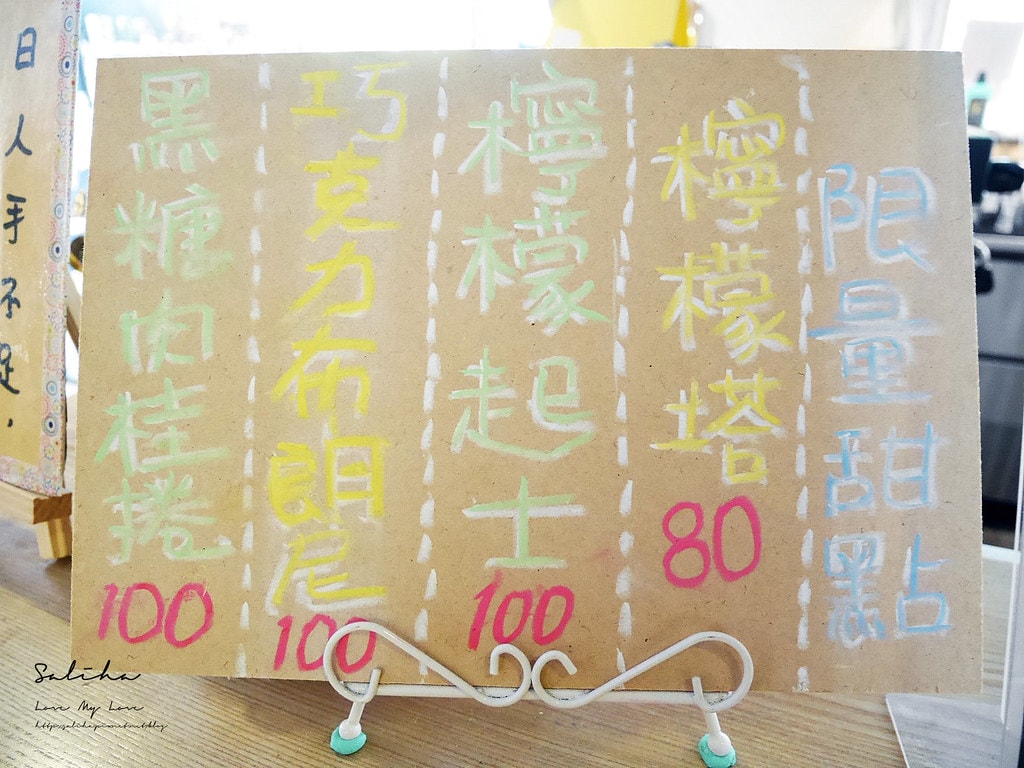 限量甜點
檸檬塔
80
檸檬起士
100
巧克力布朗尼
100
黑糖肉桂捲
100
日人手不足，
Saliha
Love My Love